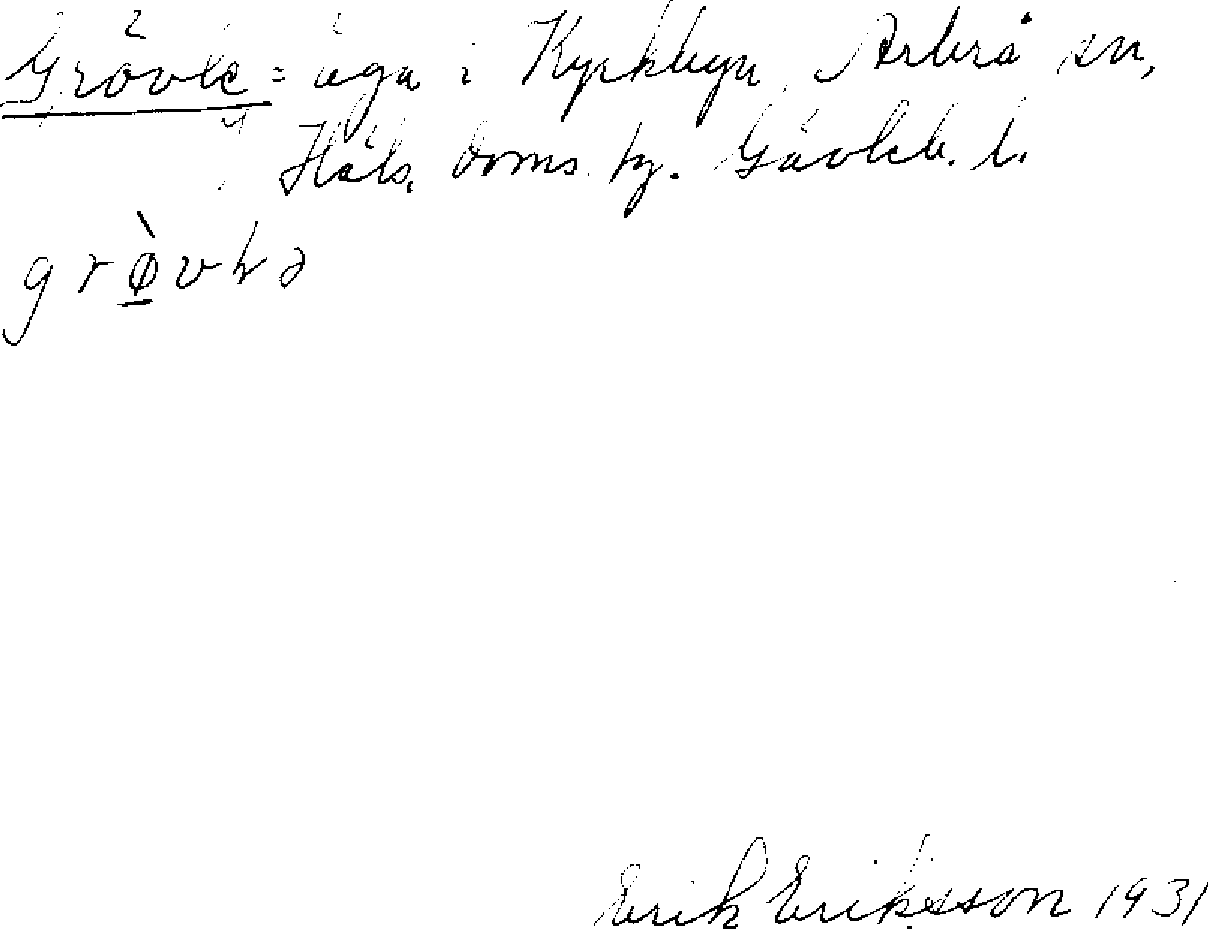 Grövle = äga i Kyrkbyn, Arbrå sn,
Häls. doms. hg. Gävleb. l.
grø̀vlə
Erik Eriksson 1931